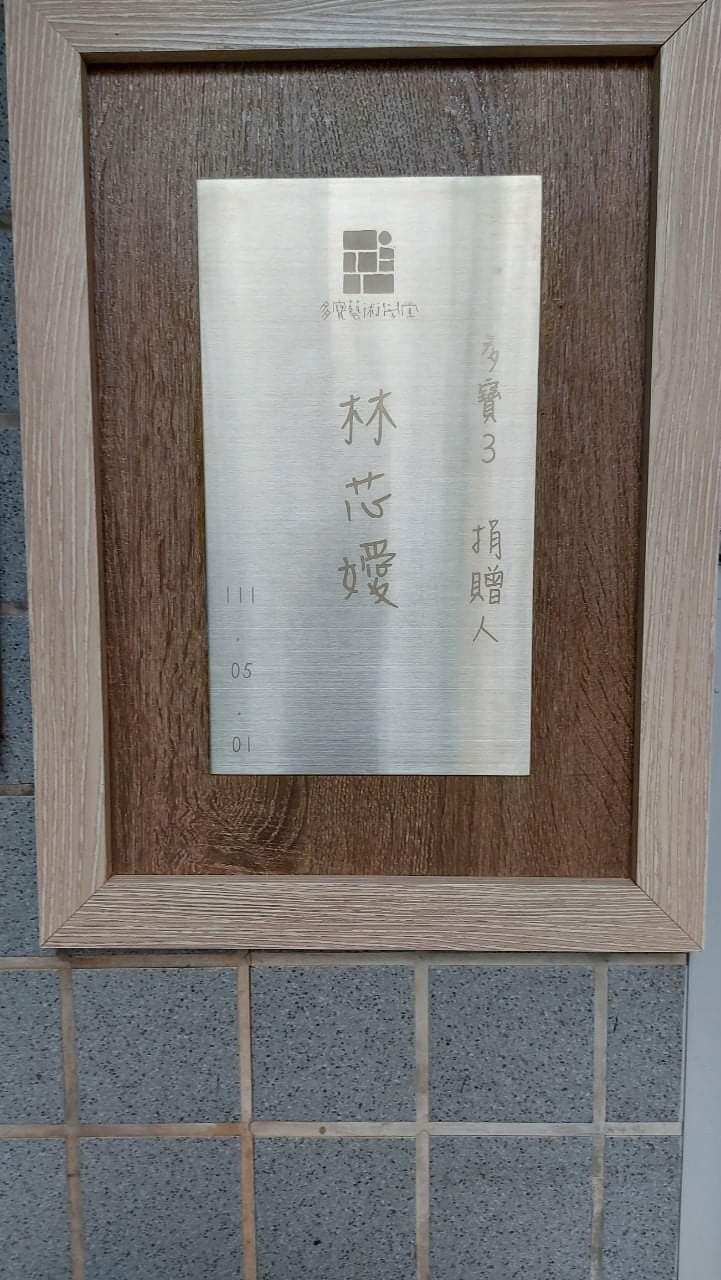 多寶藝術學堂
多寶3 捐贈人
林芯嬡
111.05.01